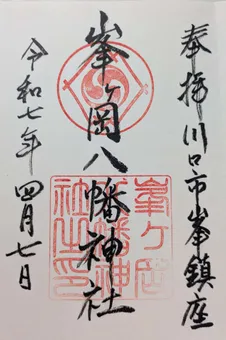 奉拝 川口市峯鎮座
峯ヶ岡八幡神社
峯ヶ岡
八幡神
社之印
令和七年 四月七日